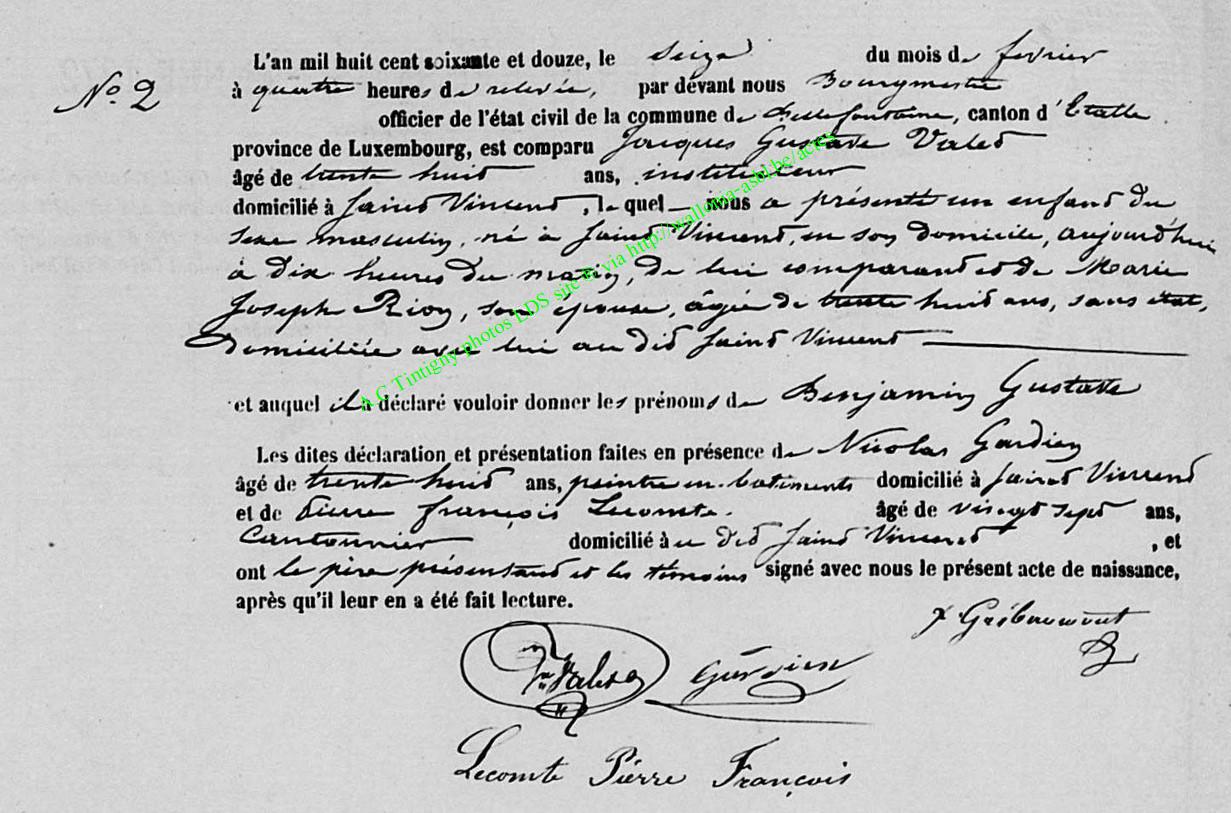 L'an mil huit cent soixante et douze, le seize du mois de fevrier
N.o 2
à quatre heures de relevée, par devant nous Bourgmestre
officier de l'état civil de la commune de Bellefontaine, canton d'Etalle
province de Luxembourg, est comparu Jacques Gustave Valet
âgé de trente huit ans, instituteur
domicilié à Saint Vincent, le quel nous a présenté un enfant du
sexe masculin, né à Saint Vincent, en son domicile, aujourd'hui
à dix heures du matin, de lui comparant et de Marie
Joseph Rion, son épouse, âgée de trente huit ans, sans état,
domiciliée avec lui au dit Saint Vincent
et auquel il a déclaré vouloir donner les prénoms de Benjamin Gustave
Les dites déclaration et présentation faites en présence de Nicolas Gardien
âgé de trente huit ans, peintre en batiments domicilié à Saint Vincent
et de Pierre François Lecomte. âgé de vingt sept ans,
Cantonnier domicilié à u dit Saint Vincent, et
ont le père présentant et les témoins signé avec nous le présent acte de naissance,
après qu'il leur en a été fait lecture.
Gribaumont
Valet Gardien
Lecomte Pierre François
A.G Tintigny photos LDS site et via http://wallonia-asbl.be/actes